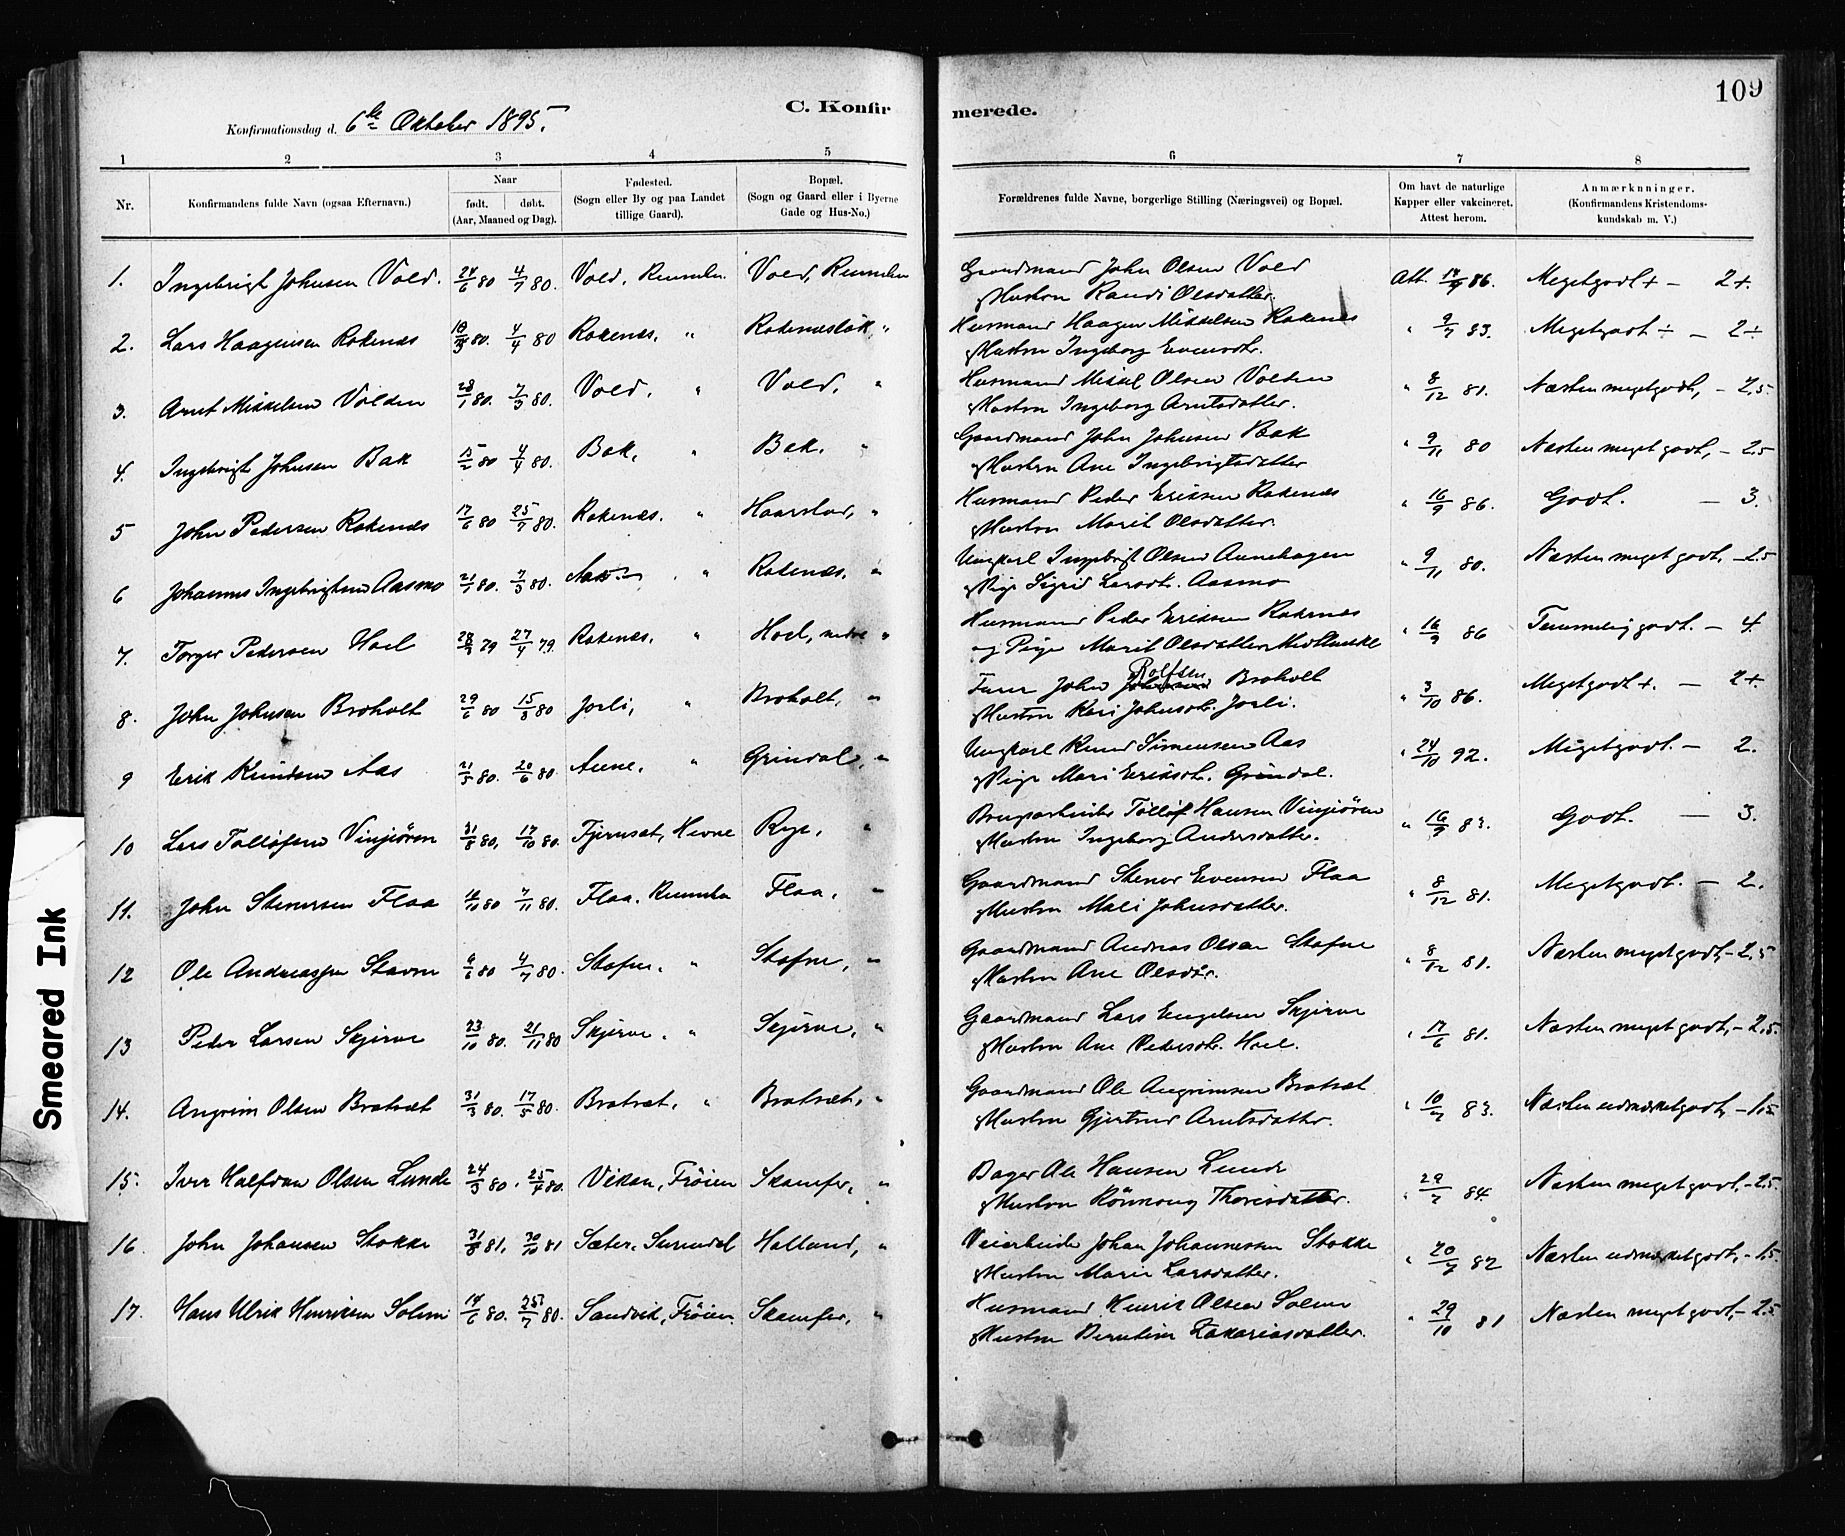 109
C. Konfirmerede.
Konfirmationsdag d. 6te Oktober 1895.
1 2 3 4 5 6 7 8
Nr.
Konfirmandens fulde Navn (ogsaa Efternavn.)
Naar
født. døbt.
(Aar, Maaned og Dag).
Fødested.
(Sogn eller By og paa Landet
tillige Gaard).
Bopæl.
(Sogn og Gaard eller i Byerne
Gade og Hus-No.)
Forældrenes fulde Navne, borgerlige Stilling (Næringsvei) og Bopæl.
Om havt de naturlige
Kapper eller vakcineret.
Attest herom.
Anmærknninger.
(Konfirmandens Kristendoms-
kundskab m. V.)
1. Ingebrigt Johnsen Vold. 24/6 80 4/7 80. Vold, Rennebu Vold, Rennebu Gaardmand John Olsen Vold Att. 86. Megetgodt + – 2+.
og Hustru Randi Olsdatter.
2. Lars Haagensen Rokenæs 80. 4/4 80 Rokenæs, " " Husmand Haagen Mikkelsen Rokenæs " 9/7 83. Megetgodt ÷ – 2÷
og Hustru Ingeborg Evensdtr.
3. Arnt Mikkelsen Volden 28/1 80. 7/3 80. Vold, " Vold, " Husmand Mikkel Olsen Volden " 8/12 81. Næsten megetgodt, – 2,5
og Hustru Ingeborg Arntsdatter.
4. Ingebrigt Johnsen Bak 80 4/4 80. Bak, " Bak. " Gaardmand John Johnsen Bak " 9/11 80 Næsten meget godt, – 2,5
og Hustru Ane Ingebrigtsdatter
5 John Pedersen Rokenæs 17/6 80 25/7 80. Rokenæs. " Haarstad, " Husmand Peder Eriksen Rokenæs " 16/9 86. Godt. – 3.
og Hustru Marit Olsdatter.
6 Johannes Ingebrigtsen Aasmo 21/1 80. 7/3 80. " Rokenæs, " Ungkarl Ingebrigt Olsen Aunehagen " 9/11 80. Næsten meget godt. – 2,5
og Pige Sigrid Larsdt. Aasmo
7. Torger Pedersen Hoel 79 27/4 79. Rokenæs, " Hoel, nedre " Husmand Peder Eriksen Rokenæs " 16/9 86 Temmelig godt. – 4.
og Pige Marit Olsdatter
8. John Johnsen Broholt 29/6 80 15/8 80 Jorli, " Broholt, " John Johnsen Rolfsen Broholt " 3/10 86. Megetgodt +. – 2+.
og Hustru Kari Johnsdt. Jorli.
9 Erik Knudsen Aas 21/5 80. 20/6 80. Aune, " Grindal, " Ungkarl Knud Simensen Aas " 24/10 92. Megetgodt. – 2.
og Pige Mari Eriksdt. Grindal.
10 Lars Tollofsen Vinjiören 31/8 80, 17/10 80. Hevne Rye, " Tollof Hansen Vinjiören " 16/9 83. Godt. – 3.
og Hustru Ingeborg Andersdatter.
11. John Stenersen Flaa 80 7/11 80. Flaa. Rennebu Flaa, " Gaardmand Stener Evensen Flaa " 8/12 81. Megetgodt. – 2.
og Hustru Mali Johnsdatter.
12 Ole Andreassen Stavne 80 4/7 80. Stofne. " Stofne, " Gaardmand Andreas Olsen Stofne " 8/12 81. Næsten megetgodt, – 2,5
og Hustru Ane Olsdtr.
13 Peder Larsen Skjerve 23/10 80. 21/11 80 Skjerve. " Skjerve, " Gaardmand Lars Engelsen Skjerve " 17/6 81. Næsten meget godt, – 2,5
og Hustru Ane Pedersdt. Hoel.
14. Angrim Olsen Bratset 31/3 80. 17/5 80. Bratset, " Bratset, " Gaardmand Ole Angrimsen Bratset " 10/7 83. Næsten udmærketgodt, – 1,5
og Hustru Gjertrud Arntsdatter.
15. Iver Halfdan Olsen Lunde 24/3 80. 25/4 80. Vikan, Fröien Skamfer, " Bager Ole Hansen Lunde " 84. Næsten meget godt, – 2,5
og Hustru Rönnoug Thoresdatter.
16. John Johansen Stokke 31/8 81. 30/10 81 Sæter, Surendal Halland, " Veiarbeider Johan Johannessen Stokke " 20/7 82 Næsten udmærketgodt, – 1,5
og Hustru Marie Larsdatter.
17. Hans Ulrik Henriksen Solem 14/6 80. 25/7 80. Sandvik, Fröien Skamfer, " Husmand Henrik Olsen Solem " 29/10 81 Næsten meget godt, – 2,5
og Hustru Berntine Zakariasdatter.
Smeared Ink